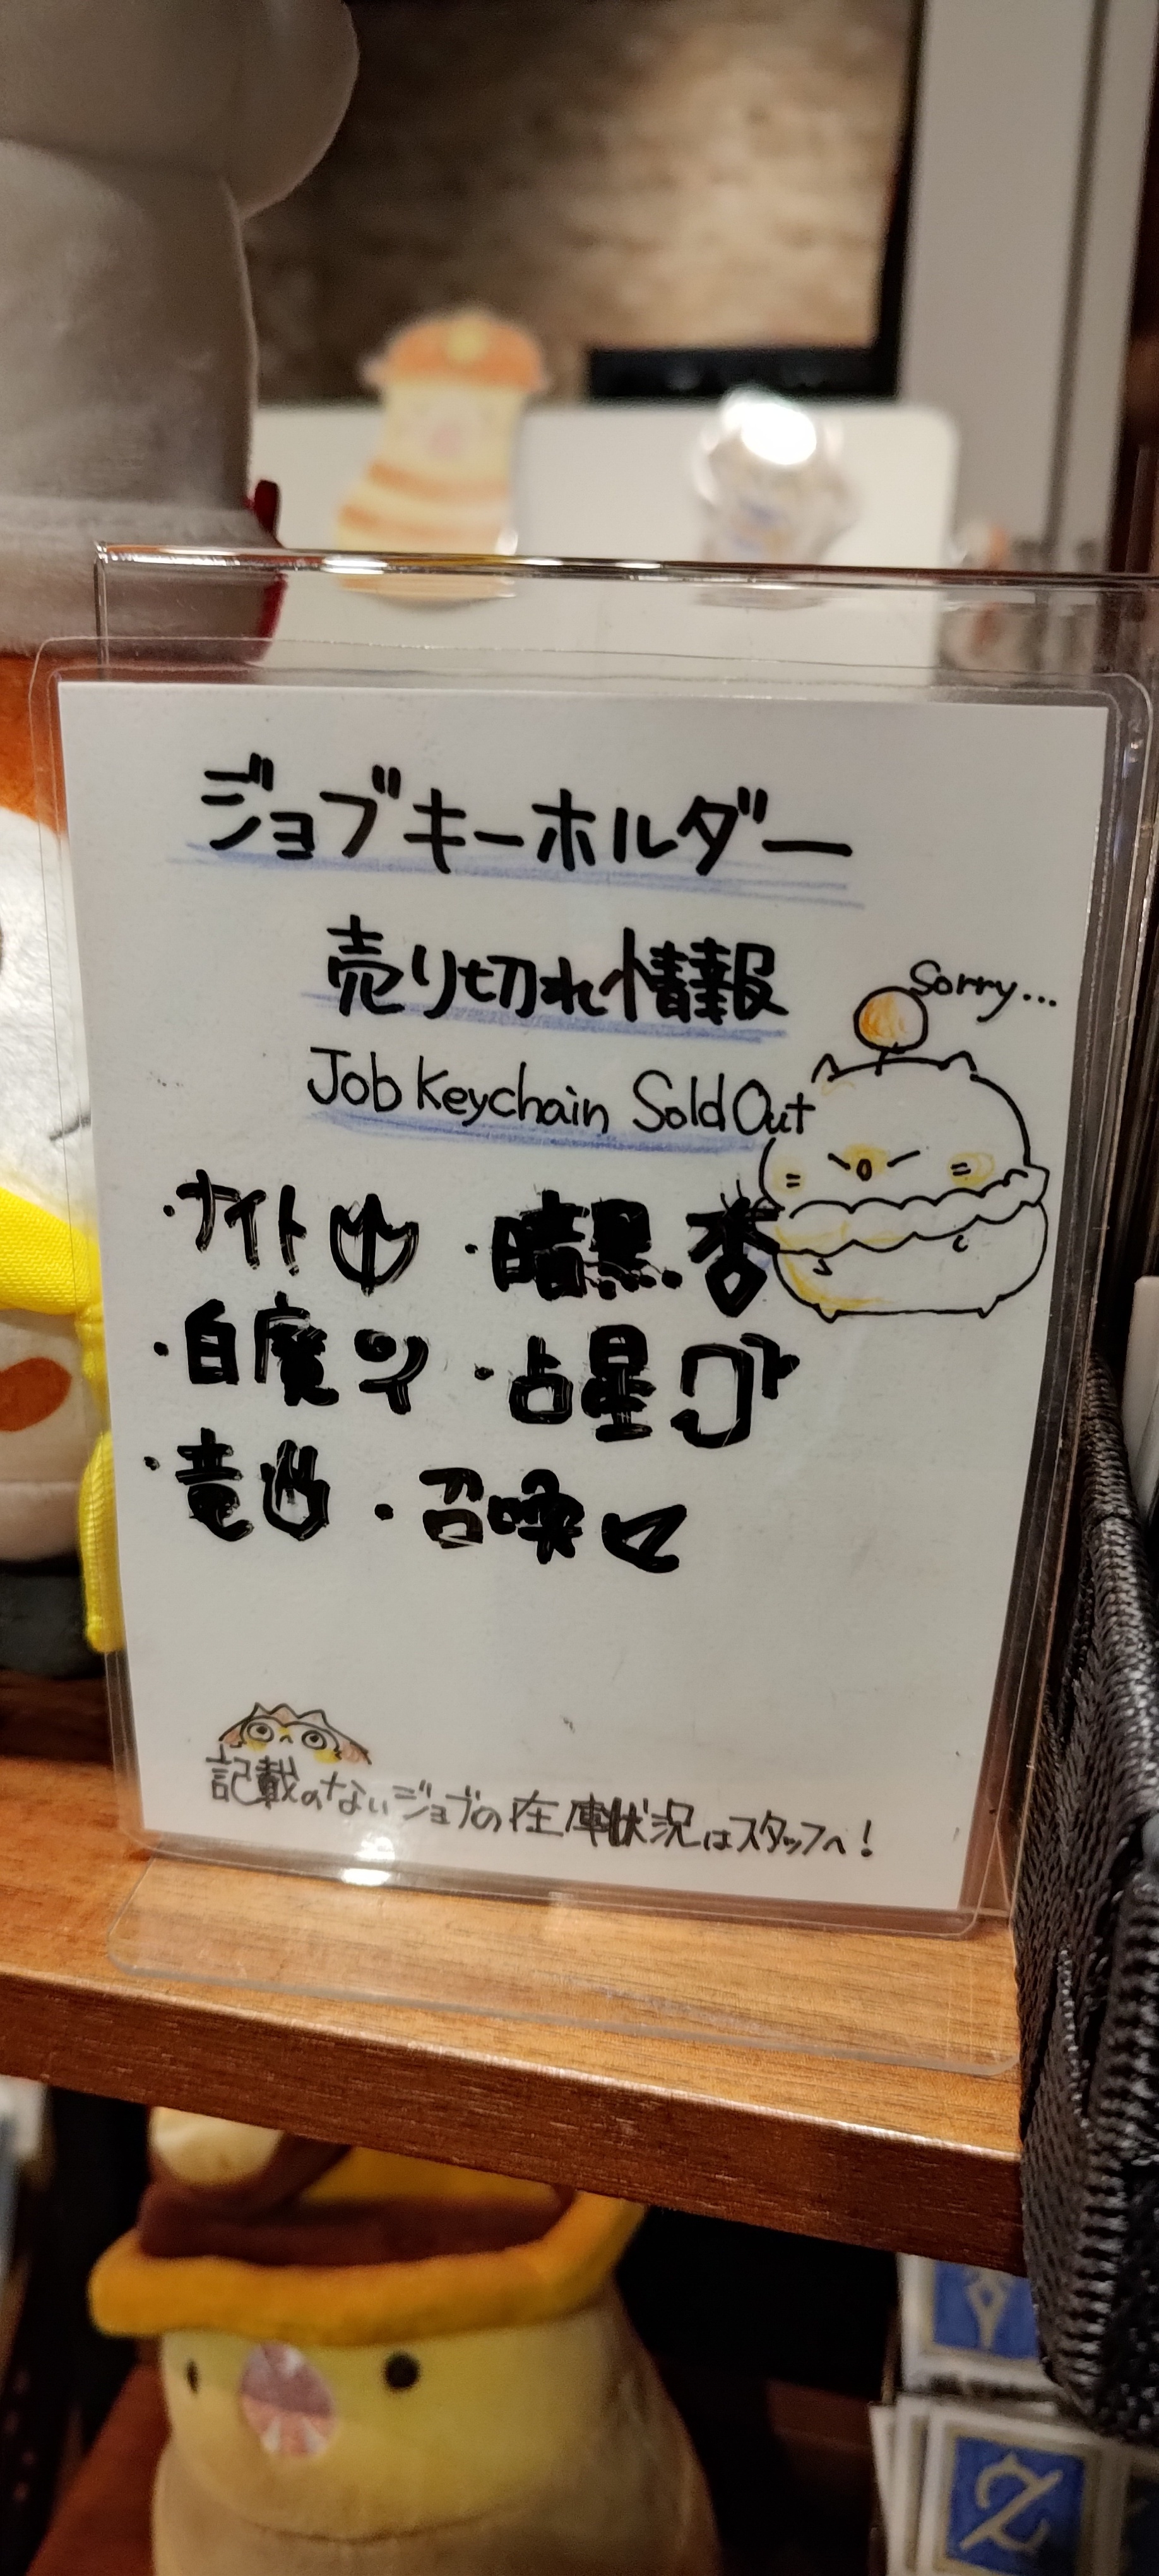 ジョブキーホルダー
売り切れ情報
Sorry...
Job Keychain Sold Out
・ナイト ・暗黒
・白魔 ・占星
・竜 ・召喚
記載のないジョブの在庫状況はスタッフへ!